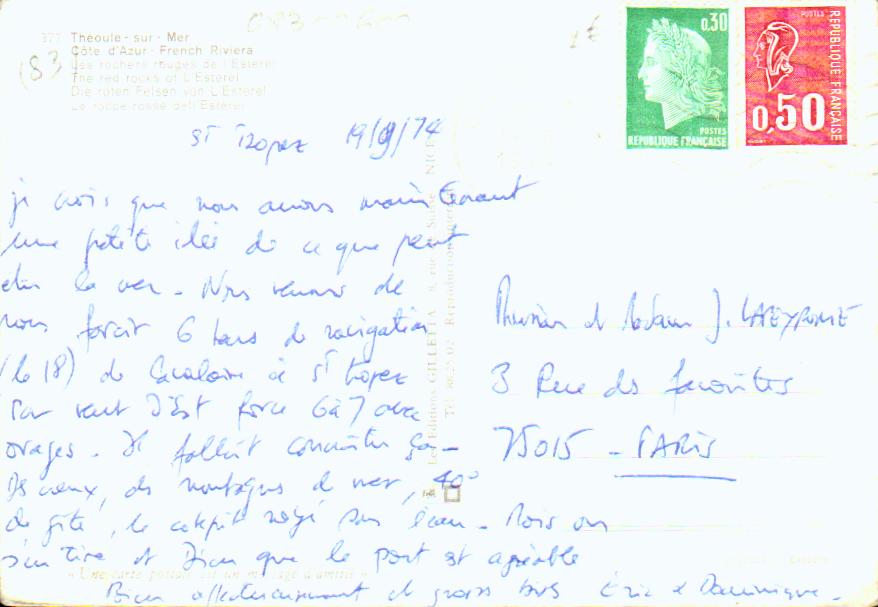 377 Theoule - sur - Mer
Côte d'Azur - French Riviera
Les rochers rouges de l'Esterel
The red rocks of L'Esterel
Die roten Felsen von L'Esterel
Le rocce rosse dell'Esterel
0,30
POSTES
REPUBLIQUE FRANÇAISE
POSTES
REPUBLIQUE FRANÇAISE
0,50
St Tropez 19/9/74
je crois que nous avons maintenant
une petite idée de ce que peut
être la mer - Nous venons de
nous farcir 6 heures de navigation
(le 18) de Cavalaire à St Tropez
par vent d'Est force 6 à 7 avec
orages. Il fallait connaître ça -
Des creux, des montagnes de mer, 40°
de gîte, le cokpit noyé sous l'eau - Mais on
s'en tire et Dieu que le port est agréable
Bien affectueusement et gros bises Eric & Dominique -
Les Editions GILLETTA 8, rue Suisse NICE
Tél. Reproduction
Monsieur et Madame J. LAPEYRONIE
3 Rue des favorites
75015 - PARIS
« Une carte postale est un message d'amitié »